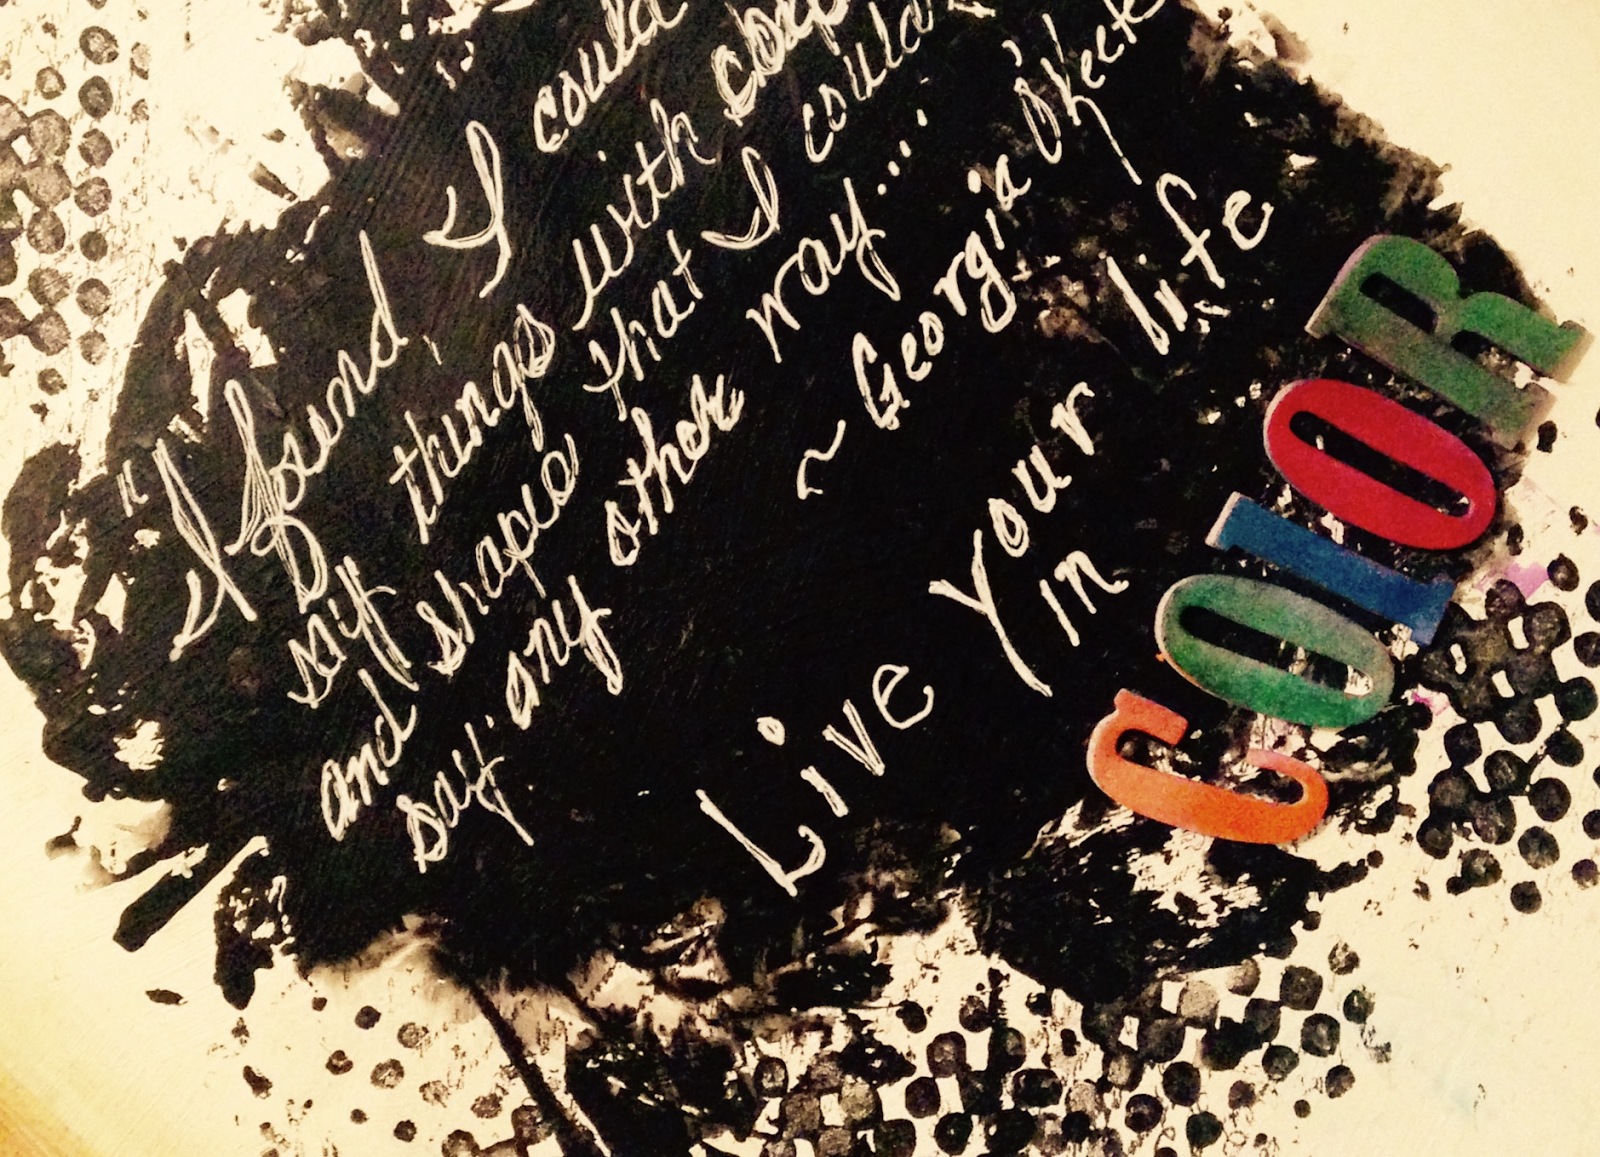 "I found I could
say things with
and shapes that I
say any other way....
~ Georgia O'Keefe
Live Your life
in
COLOR